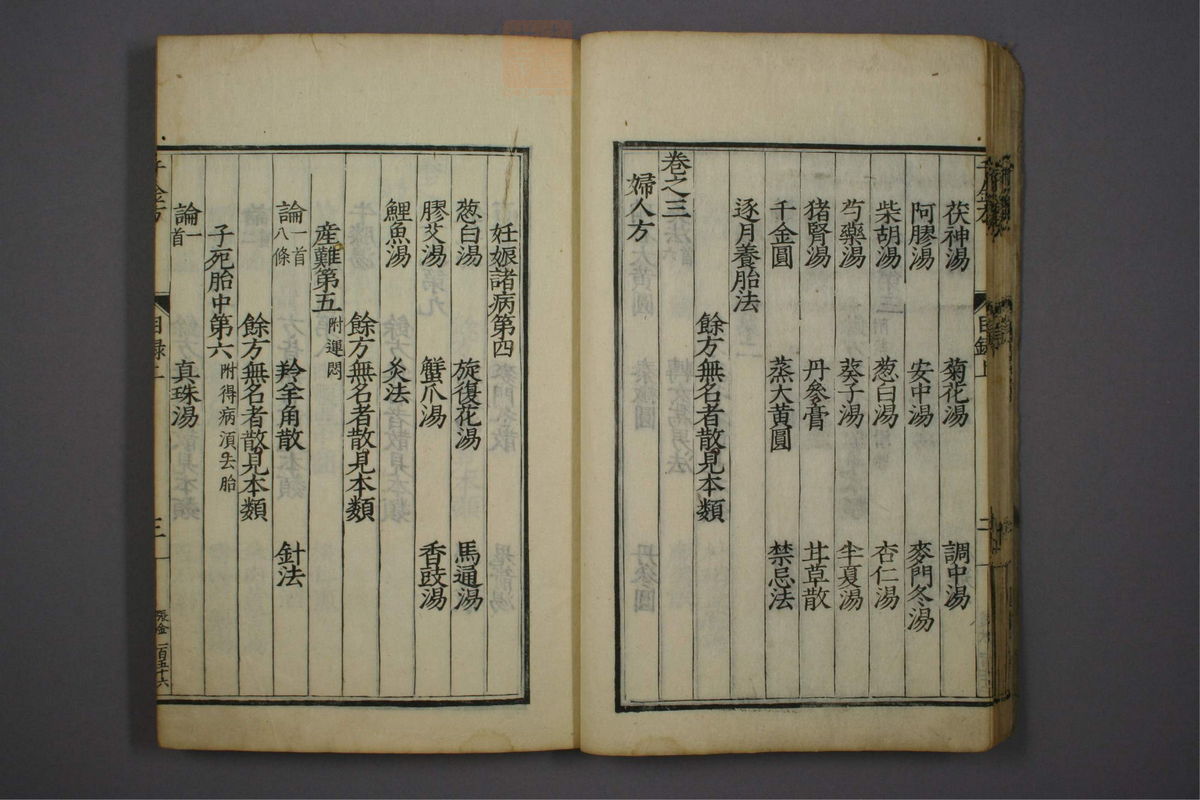 千金方 目錄上 二
茯神湯 菊花湯 調中湯
阿膠湯 安中湯 麥門冬湯
柴胡湯 葱白湯 杏仁湯
芍藥湯 葵子湯 半夏湯
猪腎湯 丹參膏 甘草散
千金圓 蒸大黃圓 禁忌法
逐月養胎法
餘方無名者散見本類
卷之三
婦人方
妊娠諸病第四
葱白湯 旋復花湯 馬通湯
膠艾湯 蟹爪湯 香豉湯
鯉魚湯 灸法
餘方無名者散見本類
産難第五 附運悶
論一首八條 羚羊角散 針法
餘方無名者散見本類
子死胎中第六 附得病湏去胎
論一首 真珠湯
千金方 目録二 三 張金 一百五十六